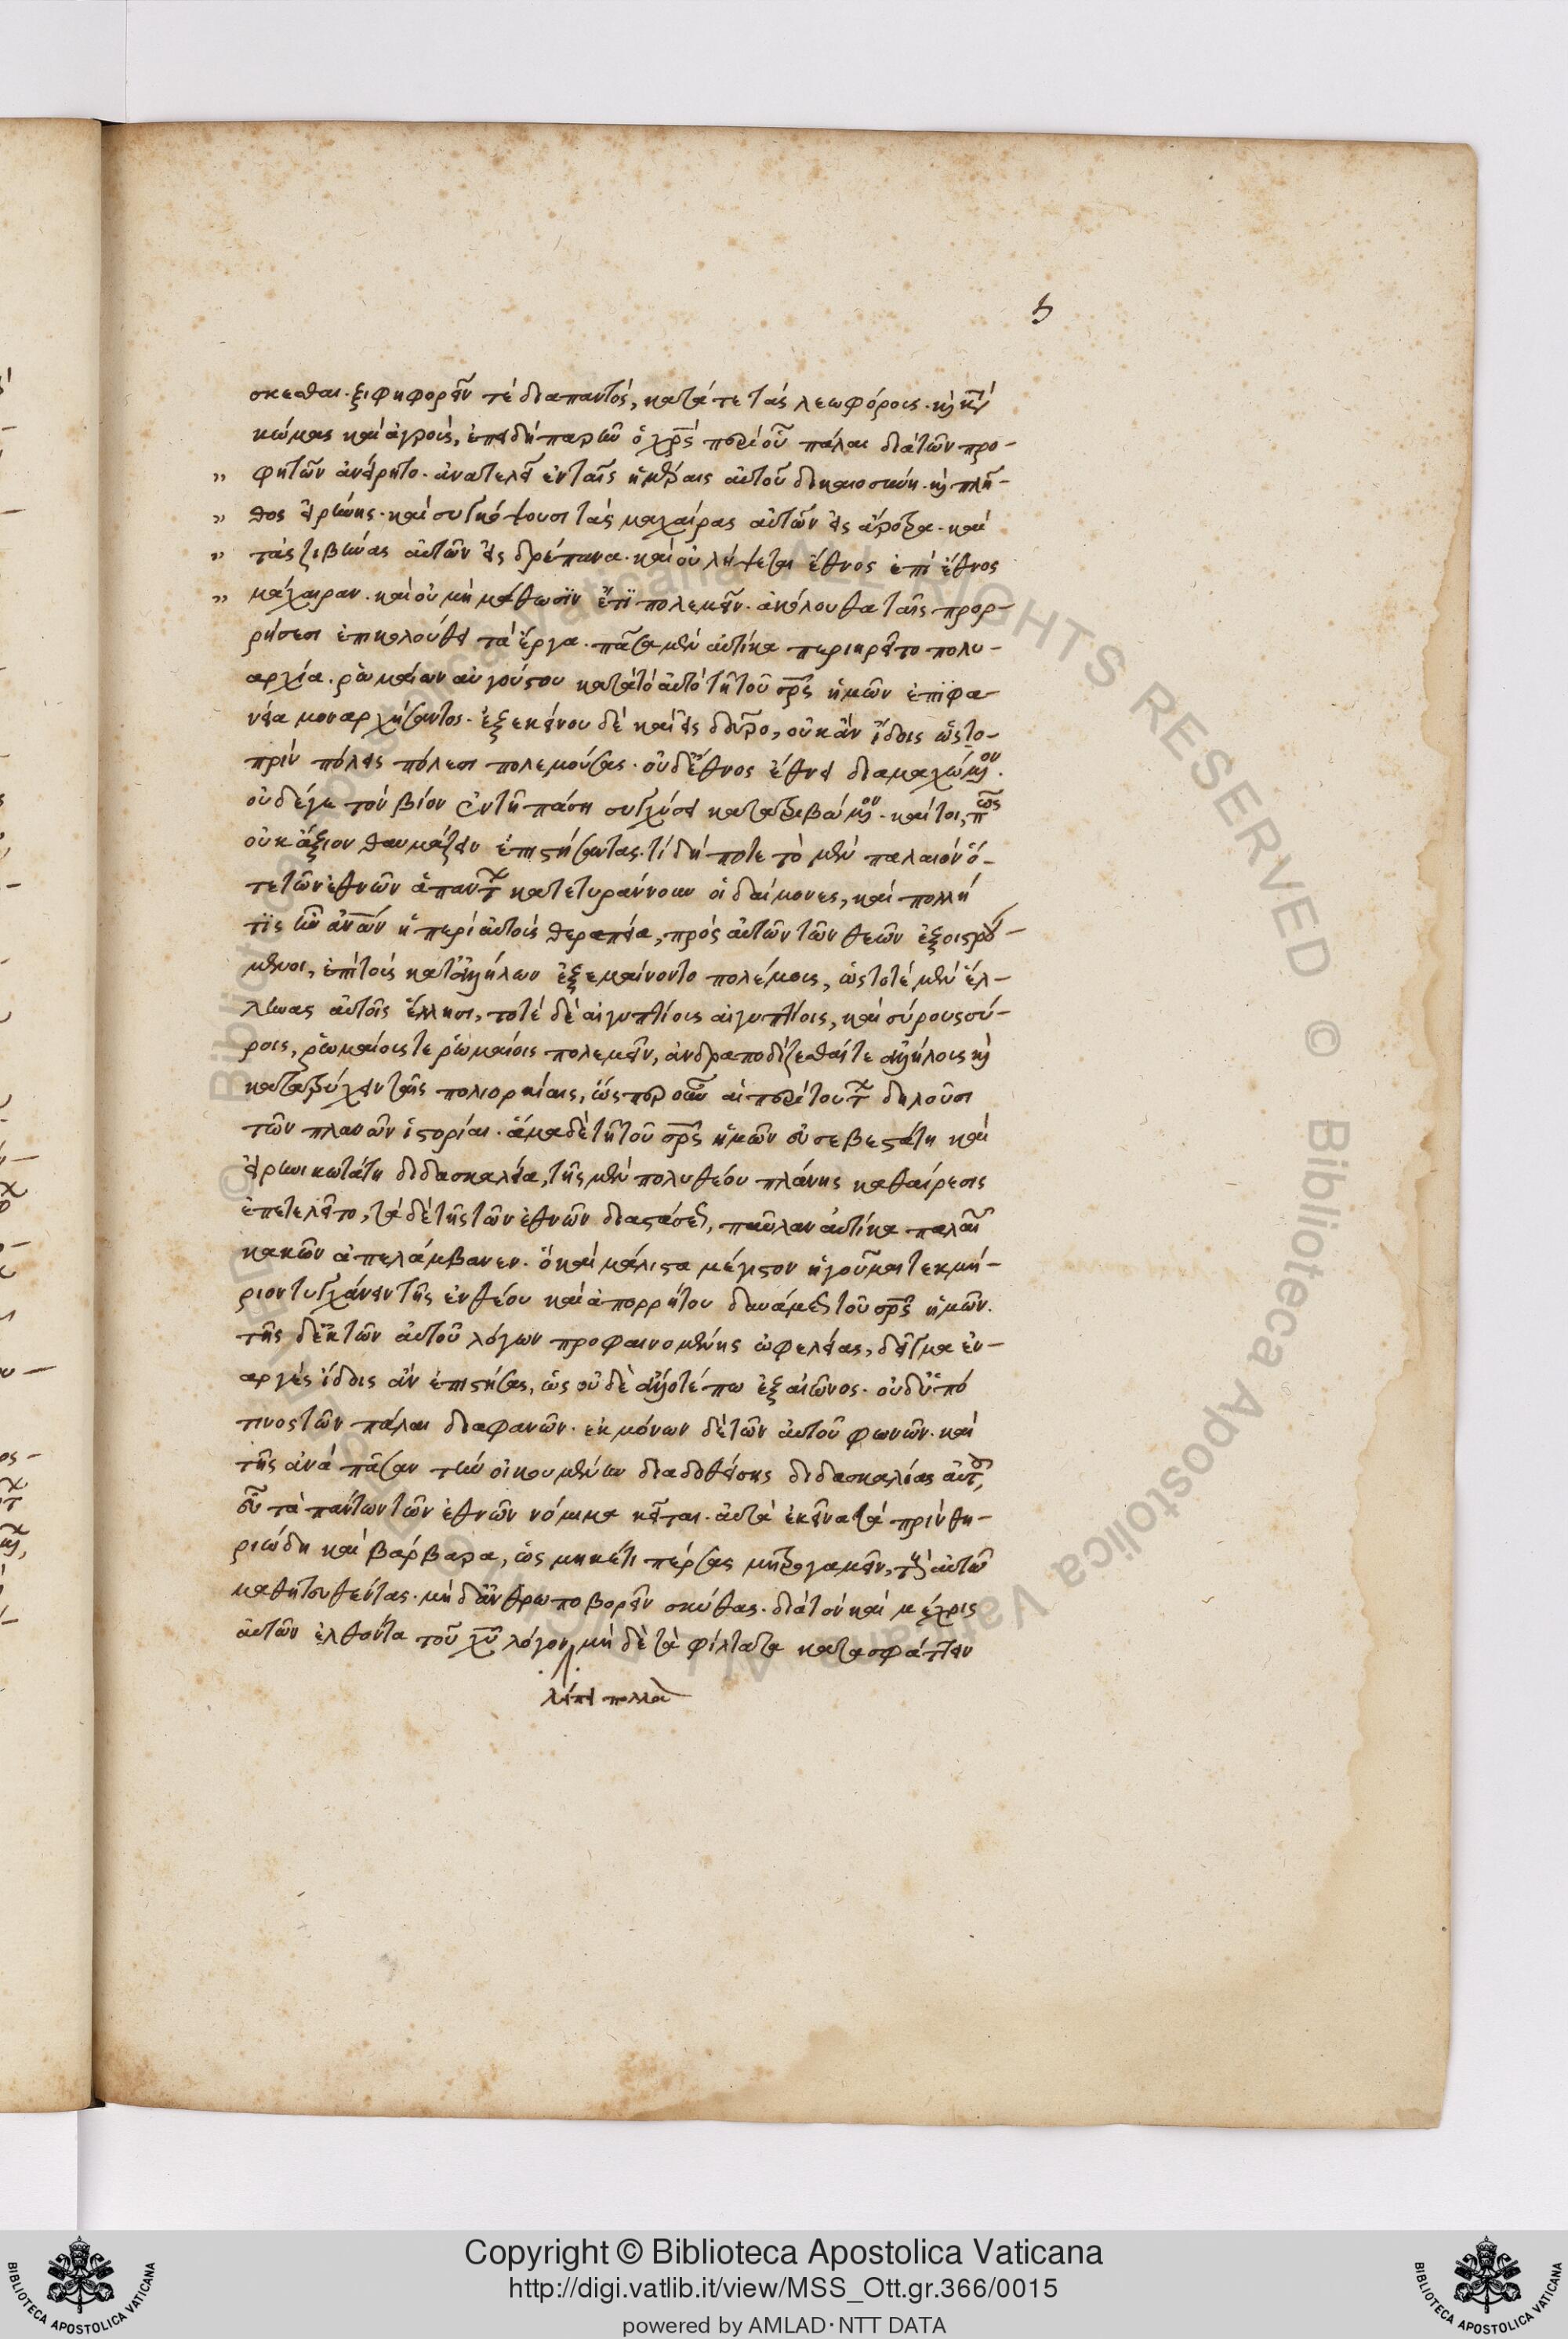 5
σκεσθαι. ξιφηφορεῖν τὲ διαπαντὸς, κατά τε τὰς λεωφόρους. κỳ κτ̀
κώμας καὶ ἀγροὺς, ἐπειδὴ παρῆν ὁ χρς̄ περὶ οὗ πάλαι διὰ τῶν προ-
„ φητῶν ἀνείρητο. ἀνατελεῖ ἐν ταῖς ἡμέραις αὐτοῦ δικαιοσύνη. κỳ πλῆ-
„ θος εἰρήνης. καὶ συγκόψουσι τὰς μαχαίρας αὐτῶν εἰς ἄροτρα. καὶ
„ τὰς ζιβύνας αὐτῶν εἰς δρέπανα. καὶ οὐ λήψεται ἔθνος ἐπὶ ἔθνος
„ μάχαιραν. καὶ οὐ μὴ μάθωσϊν ἔτϊ πολεμεῖν. ἀκόλουθα ταῖς προρ-
ρήσεσι ἐπηκολούθει τὰ ἔργα. πᾶσα μὲν αὐτίκα περιῃρεῖτο πολυ-
αρχία. ῥωμαίων αὐγούστου κατὰ τὸ αὐτὸ τῇ τοῦ σρ̄ς ἡμῶν ἐπϊφα-
νεία μοναρχήσαντος. ἐξ ἐκείνου δὲ καὶ εἰς δεῦρο, οὐκ ἂν ἴδοις ὡς το-
πρὶν πόλεις πόλεσι πολεμούσας. οὐδ' ἔθνος ἔθνει διαμαχόμενον.
οὐδέγε τὸν βίον ἐν τῇ πάσῃ συγχύσει κατατριβόμενον. καίτοι, πῶς
οὐκ ἄξιον θαυμάζειν ἐπιστήσαντας. τί δήποτε τὸ μὲν παλαιὸν ὅ-
τε τῶν ἐθνῶν ἁπάντων κατετυράννουν οἱ δαίμονες, καὶ πολλή
τϊς ἦν ἀν̄ων ἡ περὶ αὐτοὺς θεραπεία, πρὸς αὐτῶν τῶν θεῶν ἐξοιστρού-
μενοι, ἐπὶ τοὺς κατ' ἀλλήλων ἐξεμαίνοντο πολέμους, ὡς τοτὲ μὲν ἕλ-
ληνας αὐτοῖς ἕλλησι, τοτὲ δὲ αἰγυπτίους αἰγυπτίοις, καὶ σύρους σύ-
ροις, ῥωμαίους τε ῥωμαίοις πολεμεῖν, ἀνδραποδίζεσθαί τε ἀλλήλους κỳ
κατατρύχειν ταῖς πολιορκίαις, ὥσπερ οὖν αἱ περὶ τούτων δηλοῦσι
τῶν παλαιῶν ἱστορίαι. ἅμα δὲ τῇ τοῦ σρ̄ς ἡμῶν εὐσεβεστάτῃ καὶ
εἰρηνικωτάτῃ διδασκαλεία, τῆς μὲν πολυθέου πλάνης καθαίρεσις
ἐπετελεῖτο, τὰ δὲ τῆς τῶν ἐθνῶν διαστάσεως, παῦλαν αὐτίκα παλαιῶν
κακῶν ἀπελάμβανεν. ὃ καὶ μάλιστα μέγιστον ἡγοῦμαι τεκμή-
ριον τυγχάνειν τῆς ἐνθέου καὶ ἀπορρήτου δυνάμεως τοῦ σρ̄ς ἡμῶν.
τῆς δ' ἐκ τῶν αὐτοῦ λόγων προφαινομένης ὠφελείας, δεῖγμα ἐν-
αργὲς ἴδοις ἂν ἐπιστήσας, ὡς οὐδὲ ἄλλοτέ πω ἐξ αἰῶνος. οὐδ' ὑπό
τινος τῶν πάλαι διαφανῶν. ἐκ μόνων δὲ τῶν αὐτοῦ φωνῶν. καὶ
τῆς ἀνὰ πᾶσαν τὴν οἰκουμένην διαδοθείσης διδασκαλίας αὐτοῦ,
εὖ τὰ πάντων τῶν ἐθνῶν νόμιμα κεῖται. αὐτὰ ἐκεῖνα τὰ πρὶν θη-
ριώδη καὶ βάρβαρα, ὡς μηκέτι πέρσας μητρογαμεῖν, τοὺς αὐτῶ
μαθητευθέντας. μὴ δ' ἀνθρωποβορεῖν σκύθας. διὰ τὸν καὶ μέχρις
αὐτῶν ἐλθόντα τοῦ χῡ λόγον, μὴ δὲ τὰ φίλτατα κατασφάττειν
λείπει πολλὰ
Copyright © Biblioteca Apostolica Vaticana
http://digi.vatlib.it/view/MSS_Ott.gr.366/0015
powered by AMLAD·NTT DATA
BIBLIOTECA APOSTOLICA VATICANA
BIBLIOTECA APOSTOLICA VATICANA